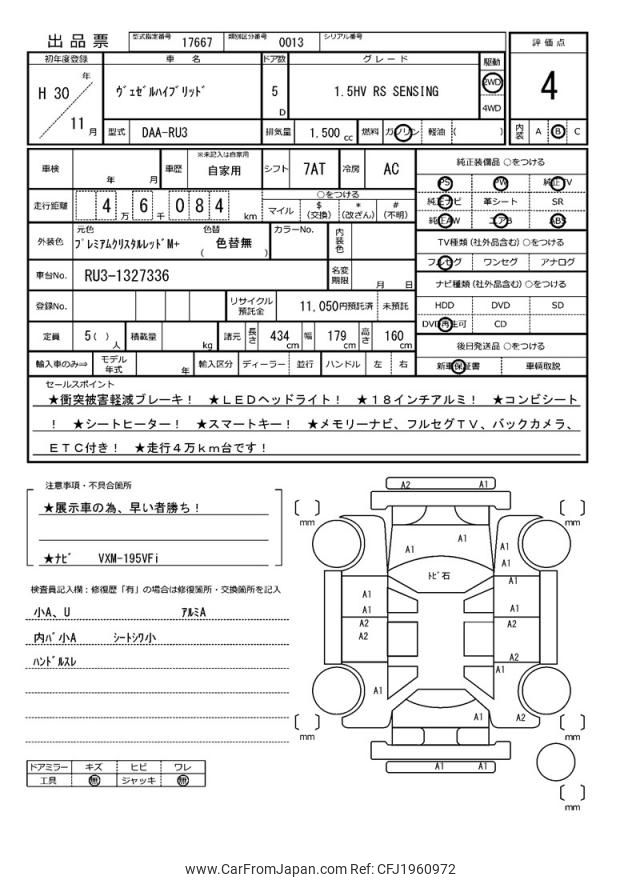 出品票 型式指定番号 17667 類別区分番号 0013 シリアル番号
評価点
4
初年度登録 車名 ドア数 グレード 駆動
H 30 年 11 月
ヴェゼルハイブリッド 5 D 1.5HV RS SENSING 2WD
4WD
型式 DAA-RU3 排気量 1.500 cc 燃料 ガソリン 軽油 ( ) 内装 A B C
車検 年 月 車歴 ※未記入は自家用 自家用 シフト 7AT 冷房 AC
純正装備品 ○をつける
PS PW 純正TV
純正ナビ 革シート SR
純正AW エアB ABS
走行距離 4 万 6 千 0 8 4 km
○をつける
マイル $(交換) *(改ざん) #(不明)
外装色 元色 プレミアムクリスタルレッドM+ 色替 ( 色替無 ) カラーNo. 内装色
TV種類 (社外品含む) ○をつける
フルセグ ワンセグ アナログ
車台No. RU3-1327336 名変期限 月 日
ナビ種類 (社外品含む) ○をつける
HDD DVD SD
DVD再生可 CD
登録No. リサイクル預託金 11,050円預託済 未預託
定員 5 ( ) 人 積載量 kg 諸元 長さ 434 cm 幅 179 cm 高さ 160 cm
後日発送品 ○をつける
新車保証書 車輌取説
輸入車のみ⇒ モデル年式 年 輸入区分 ディーラー 並行 ハンドル 左 右
セールスポイント
★衝突被害軽減ブレーキ！ ★ＬＥＤヘッドライト！ ★１８インチアルミ！ ★コンビシート
！ ★シートヒーター！ ★スマートキー！ ★メモリーナビ、フルセグＴＶ、バックカメラ、
ＥＴＣ付き！ ★走行４万ｋｍ台です！
注意事項・不具合箇所
★展示車の為、早い者勝ち！
★ナビ VXM-195VFi
検査員記入欄：修復歴「有」の場合は修復箇所・交換箇所を記入
小A、U アルミA
内バ小A シートシワ小
ハンドルスレ
ドアミラー キズ ヒビ ワレ
工具 無 ジャッキ 無
A2 A1
mm mm
A1 A1 A1
A1
トビ石
A1 A1
A1 A1
A2
A2 A2
A2
A1 A1
A1 A2
mm mm
A1 A1
mm
www.CarFromJapan.com Ref: CFJ1960972